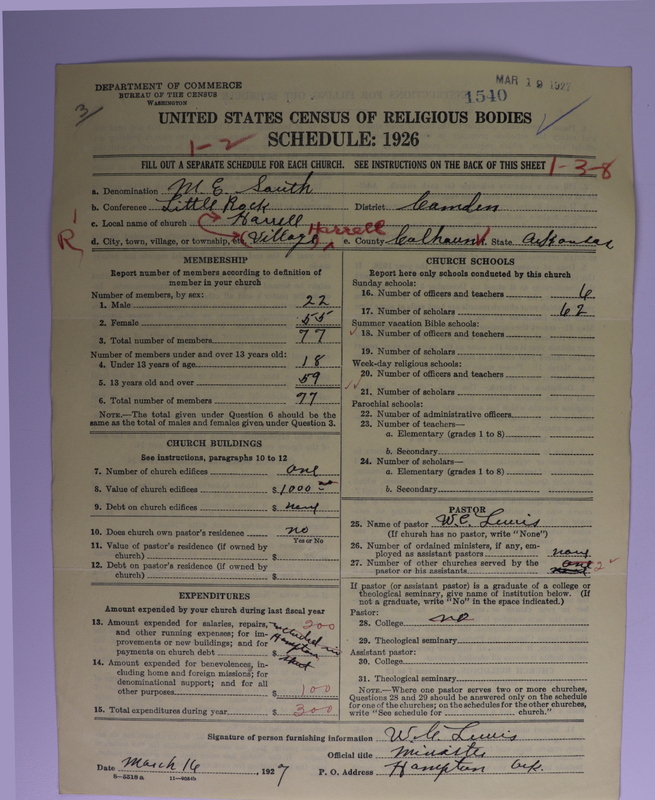 DEPARTMENT OF COMMERCE
BUREAU OF THE CENSUS
WASHINGTON
MAR 19 1927
1540
3
UNITED STATES CENSUS OF RELIGIOUS BODIES
SCHEDULE: 1926
1-2
FILL OUT A SEPARATE SCHEDULE FOR EACH CHURCH. SEE INSTRUCTIONS ON THE BACK OF THIS SHEET
1-3-8
a. Denomination M. E. South
b. Conference Little Rock District Camden
c. Local name of church Harrell
R
d. City, town, village, or township, etc. (Village) Harrell e. County Calhoun f. State Arkansas
MEMBERSHIP
Report number of members according to definition of
member in your church
Number of members, by sex:
1. Male 22
2. Female 55
3. Total number of members 77
Number of members under and over 13 years old:
4. Under 13 years of age 18
5. 13 years old and over 59
6. Total number of members 77
NOTE.—The total given under Question 6 should be the
same as the total of males and females given under Question 3.
CHURCH BUILDINGS
See instructions, paragraphs 10 to 12
7. Number of church edifices one
8. Value of church edifices $1000
9. Debt on church edifices $ none
10. Does church own pastor's residence no
Yes or No
11. Value of pastor's residence (if owned by
church) $
12. Debt on pastor's residence (if owned by
church) $
EXPENDITURES
Amount expended by your church during last fiscal year
13. Amount expended for salaries, repairs,
and other running expenses; for im-
provements or new buildings; and for
payments on church debt $ 200
included in
Hampton
sheet
14. Amount expended for benevolences, in-
cluding home and foreign missions; for
denominational support; and for all
other purposes $ 100
15. Total expenditures during year $ 300
CHURCH SCHOOLS
Report here only schools conducted by this church
Sunday schools:
16. Number of officers and teachers 6
17. Number of scholars 62
Summer vacation Bible schools:
18. Number of officers and teachers
19. Number of scholars
Week-day religious schools:
20. Number of officers and teachers
21. Number of scholars
Parochial schools:
22. Number of administrative officers
23. Number of teachers—
a. Elementary (grades 1 to 8)
b. Secondary
24. Number of scholars—
a. Elementary (grades 1 to 8)
b. Secondary
PASTOR
25. Name of pastor W. C. Lewis
(If church has no pastor, write "None")
26. Number of ordained ministers, if any, em-
ployed as assistant pastors none
27. Number of other churches served by the
pastor or his assistants 2
If pastor (or assistant pastor) is a graduate of a college or
theological seminary, give name of institution below. (If
not a graduate, write "No" in the space indicated.)
Pastor:
28. College no
29. Theological seminary
Assistant pastor:
30. College
31. Theological seminary
NOTE.—Where one pastor serves two or more churches,
Questions 28 and 29 should be answered only on the schedule
for one of the churches; on the schedules for the other churches,
write "See schedule for church."
Signature of person furnishing information W. C. Lewis
Official title Minister
Date March 16, 1927 P. O. Address Hampton Ark.